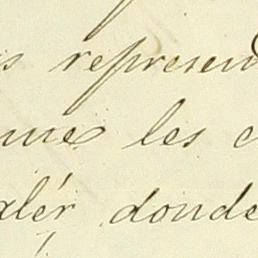 s represen
ue les c
alér donde